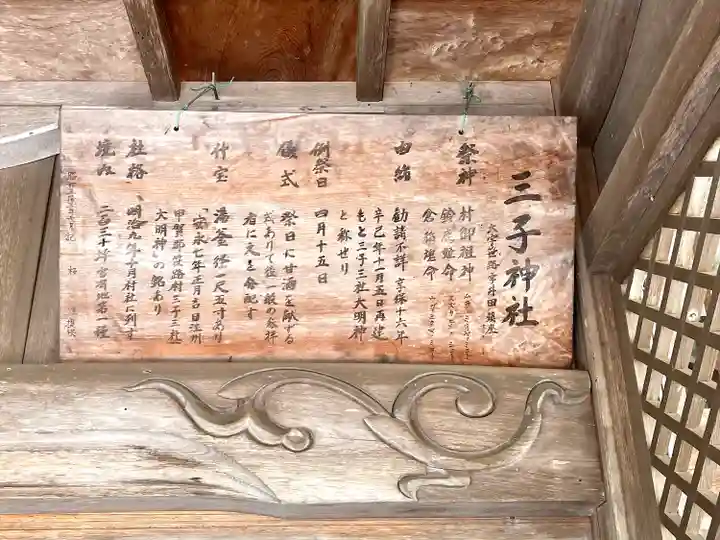 三子神社
祭神
村御祖神
鈴鹿姫命
倉稲姫命
由緒
勧請不詳 享保十六年
辛巳年十一月五日再建
もと三子三社大明神
と称せり
例祭日
四月十五日
儀式
祭日に甘酒を献ずる
式ありて後一般の参拝
者に之を分配す
什宝
湯釜径一尺五寸あり
「安永七年正月吉日江州
甲賀郡笹路村三子三社
大明神」の銘あり
社格
明治九年十月村社に列す
境内
二百三十坪官有地第一種